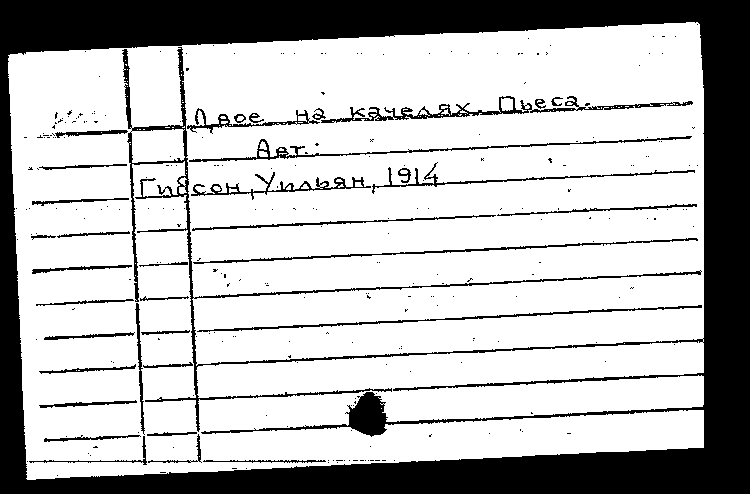 Двое на качелях. Пьеса.
Авт.:
Гибсон, Уильян, 1914